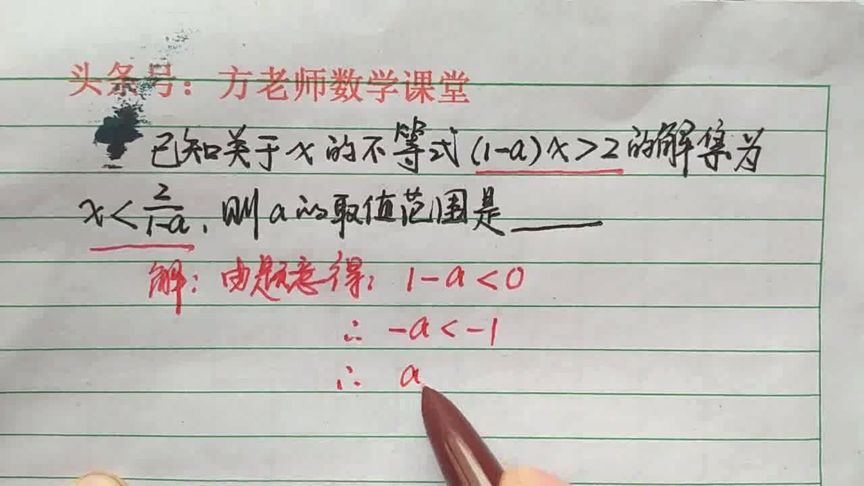 头条号：方老师数学课堂
已知关于x的不等式(1-a)x>2的解集为
x<2/(1-a)，则a的取值范围是____
解：由题意得：1-a<0
∴ -a<-1
∴ a